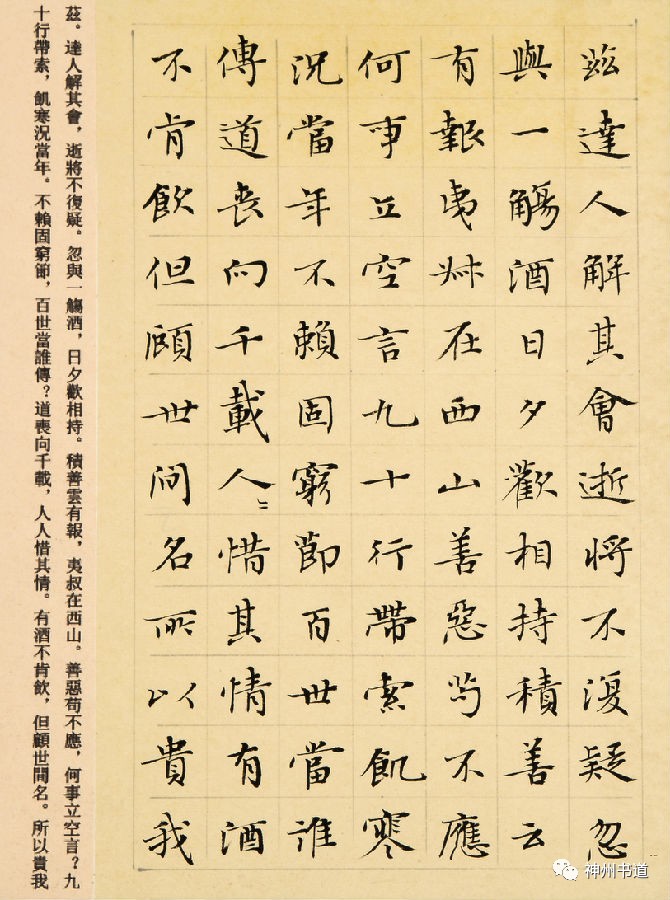 茲達人解其會逝將不復疑忽
與一觴酒日夕歡相持積善云
有報夷叔在西山善惡苟不應
何事立空言九十行帶索飢寒
況當年不賴固窮節百世當誰
傳道喪向千載人〻惜其情有酒
不肯飲但顧世間名所以貴我
茲。達人解其會，逝將不復疑。忽與一觴酒，日夕歡相持。積善雲有報，夷叔在西山。善惡苟不應，何事立空言？九
十行帶索，飢寒況當年。不賴固窮節，百世當誰傳？道喪向千載，人人惜其情。有酒不肯飲，但顧世間名。所以貴我
神州书道